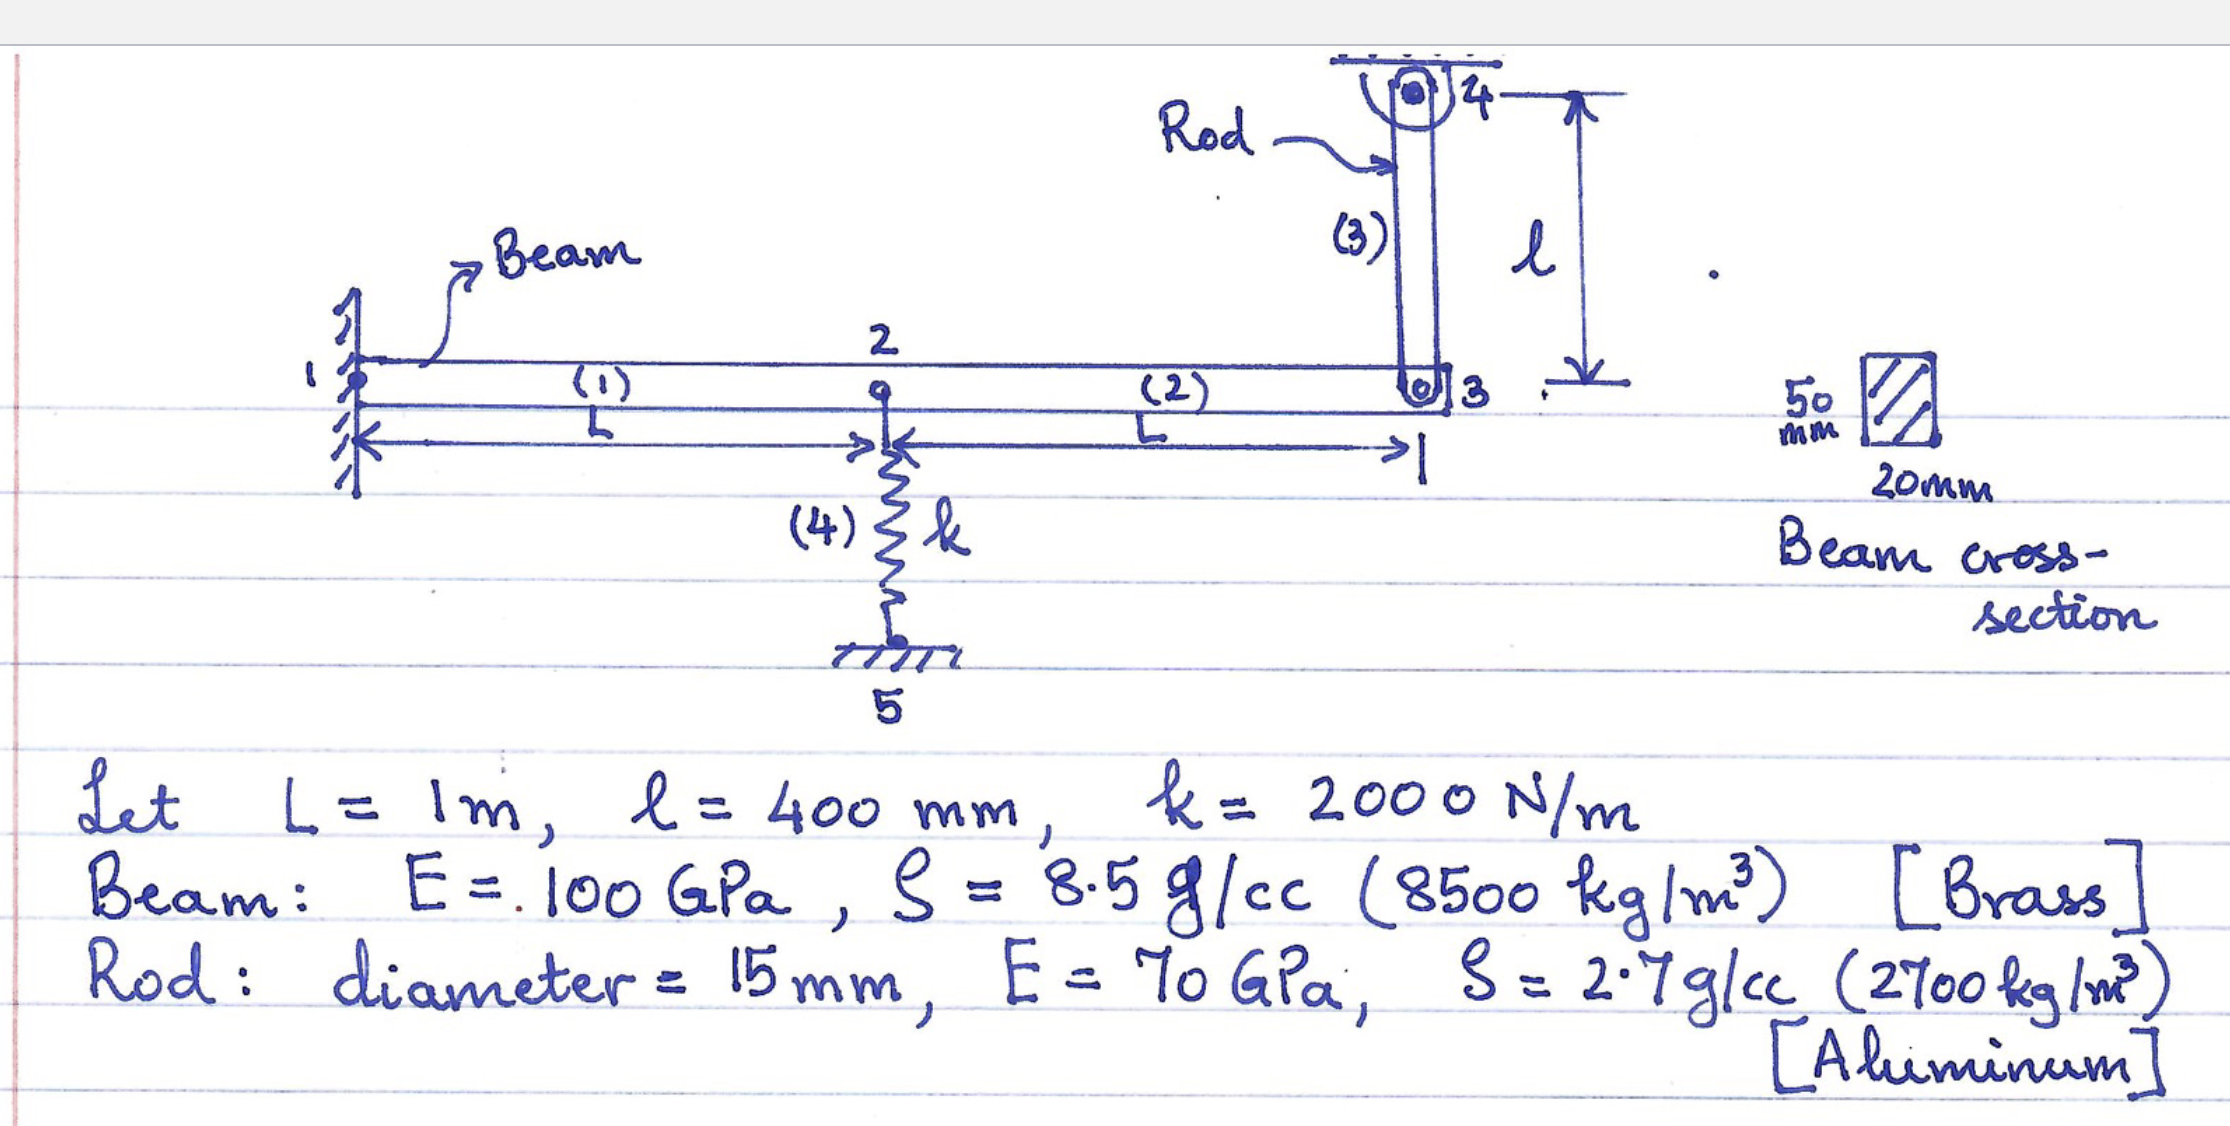 4
Rod
l
(3)
Beam
2
1
(1)
(2)
3
L
L
50
mm
20mm
(4)
k
Beam cross-
section
5
Let L = 1m, l = 400 mm, k = 2000 N/m
Beam: E = 100 GPa, ρ = 8.5 g/cc (8500 kg/m³) [Brass]
Rod: diameter = 15mm, E = 70 GPa, ρ = 2.7g/cc (2700kg/m³)
[Aluminum]